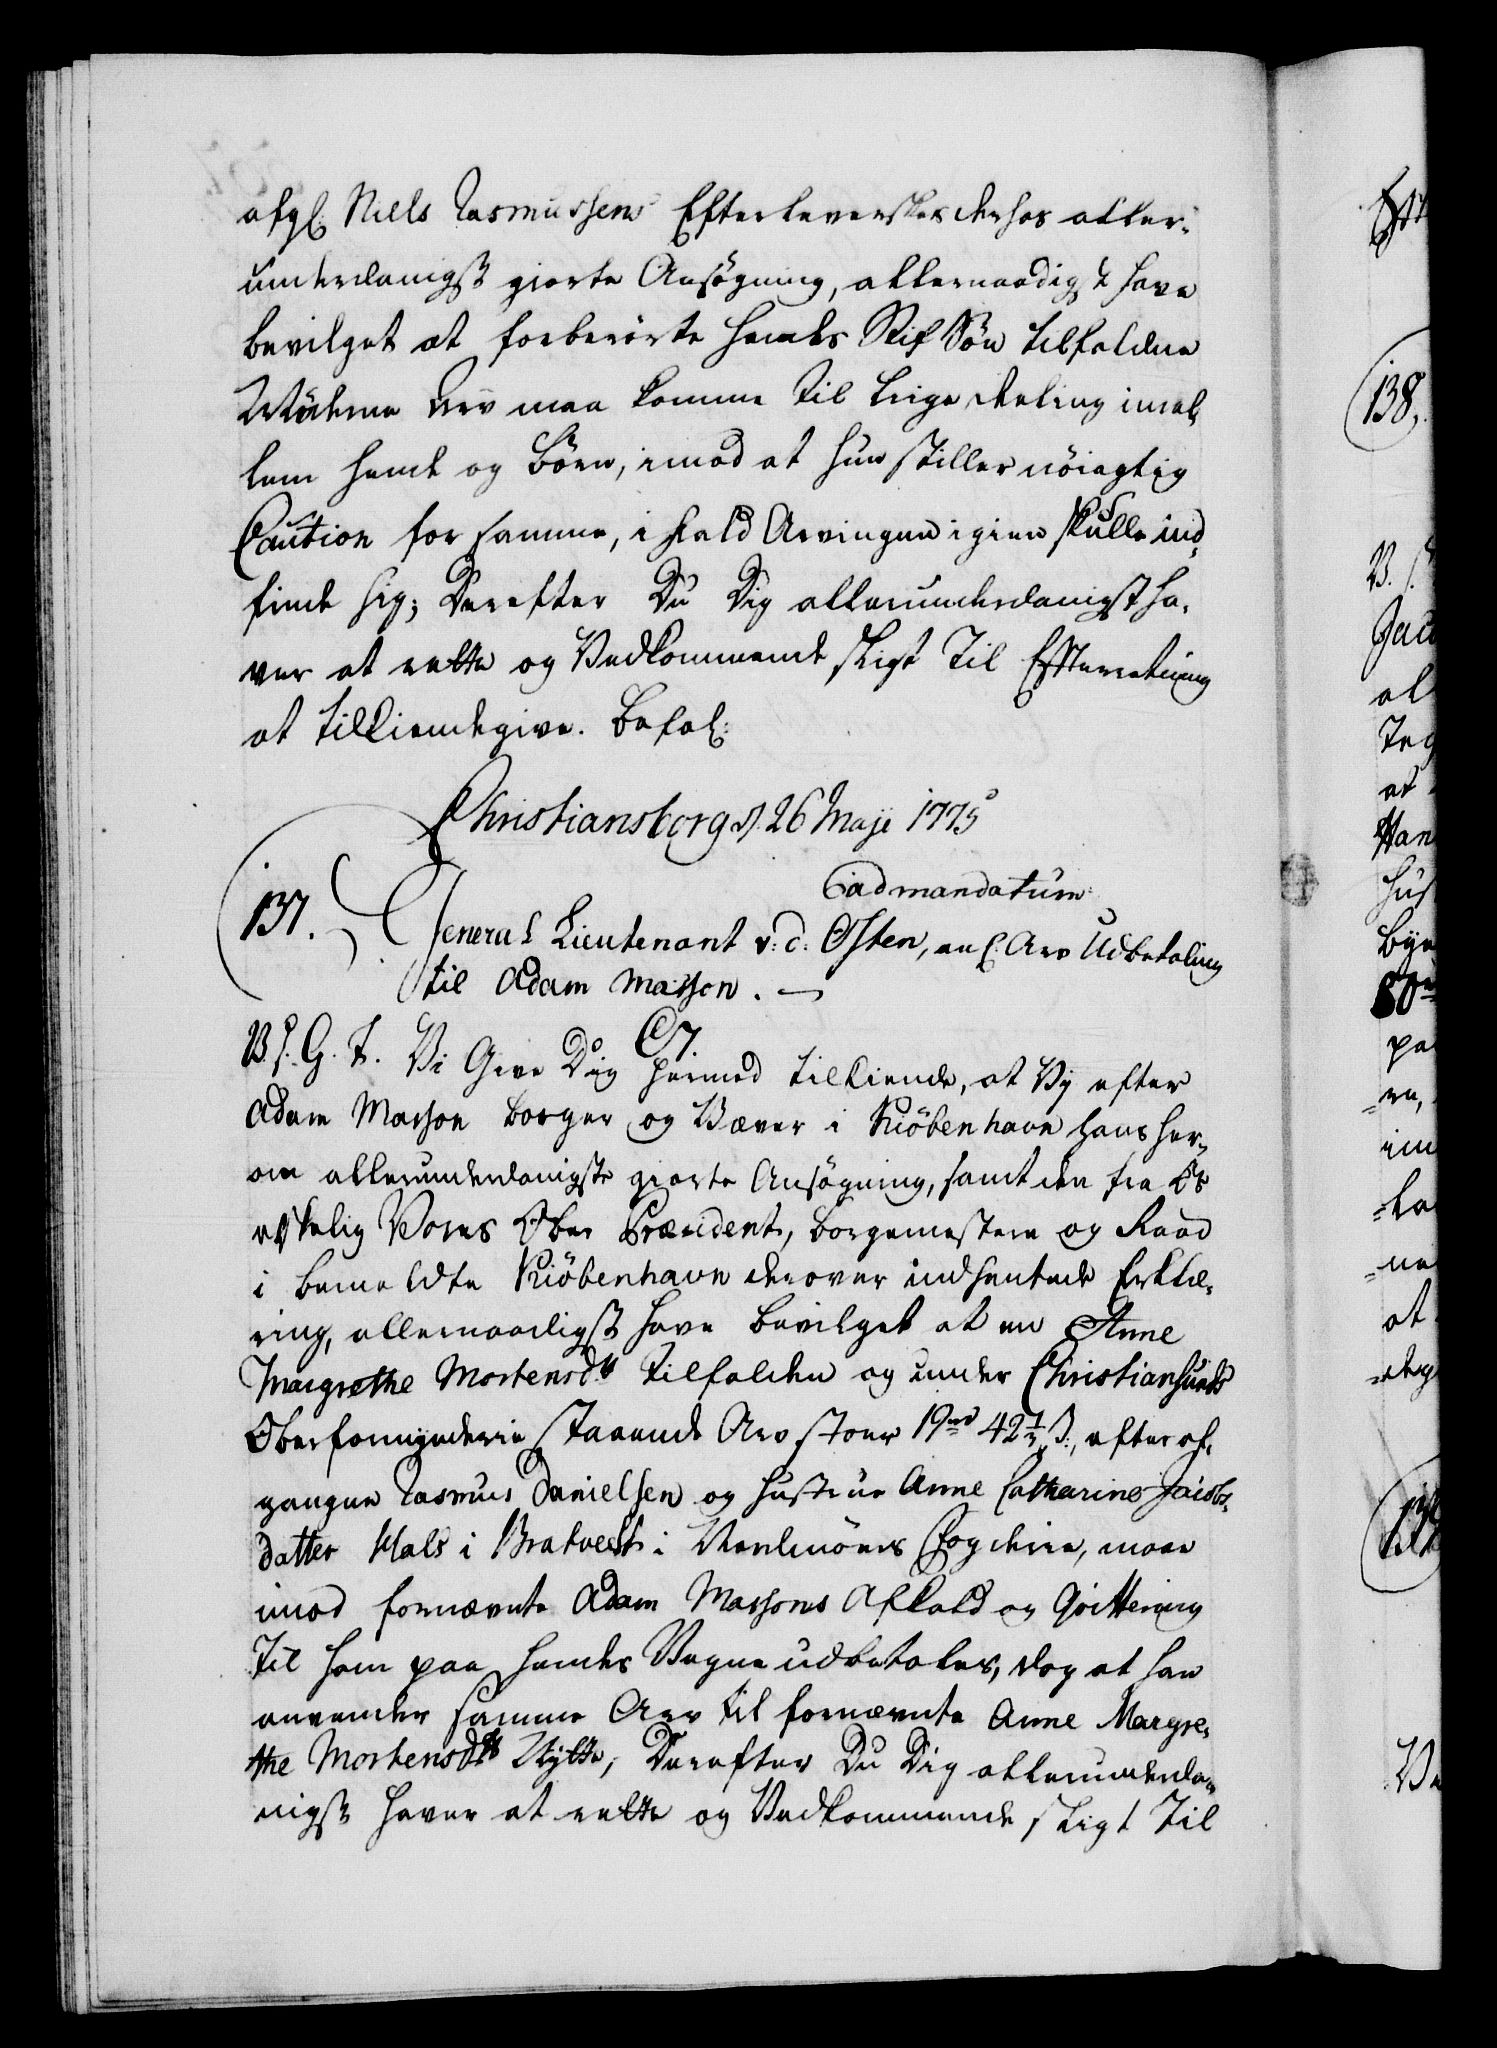 afgl: Niels Rasmussens Efterleverskes derhos aller-
underdanigst giorte Ansøgning, allernaadigst have
bevilget at forberørte hendes Stif Søn tilfaldne
Mødrene Arv maa komme til lige deeling imel-
lem hende og Børn, imod at hun stiller nöiagtig
Caution for samme, i fald Arvingen igien skulle ind-
finde sig; Derefter Du Dig allerunderdanigst ha-
ver at rette og Vedkommende sligt til Efterretning
at tilkiendegive. Befal:
Christiansborg d. 26 Maji 1775
ad mandatum
137. General Lieutenant v: d: Osten, anl: Arv Udbetaling
til Adam Masson. —
C7.
V. G. T. Vi Give Dig hermed tilkiende, at Vy efter
Adam Masson Borger og Væver i Kiöbenhavn hans her-
om allerunderdanigste giorte Ansøgning, samt den fra Os
elskelig Vores Ober Præsident, Borgemestere og Raad
i bemeldte Kiöbenhavn derover indhentede Erklæ-
ring, allernaadigst have bevilget at en Anne
Margrethe Mortensdtr tilfalden og under Christiansunds
Oberformynderie staaende Arv stor 19 rd 42½ ß., efter af-
gangne Rasmus Danielsen og Hustrue Anne Catharine Jacobs-
datter Hals i Bratvest i Nordmöers Fogderie, maae
imod fornævnte Adam Massons Afkald og Qvittering
til ham paa hendes Vegne udbetales, dog at han
anvender samme Arv til fornævnte Anne Margre-
the Mortensdtrs Nytte; Derefter Du Dig allerunderda-
nigst haver at rette og Vedkommende sligt til
138.